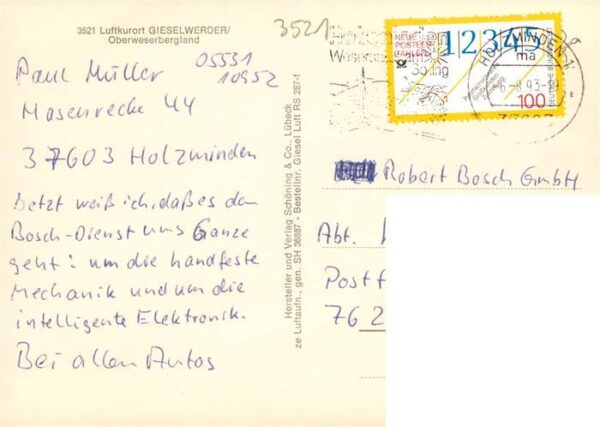 3521 Luftkurort GIESELWERDER/
Oberweserbergland
3521
Paul Müller 05531
10952
Masenrecke 44
37603 Holzminden
Jetzt weiß ich, daß es dem
Bosch-Dienst ums Ganze
geht: um die handfeste
Mechanik und um die
intelligente Elektronik.
Bei allen Autos
Hersteller und Verlag Schöning & Co., Lübeck
ze Luftaufn., gen. SH 36887 - Bestellnr. Giesel Luft RS 287-f
Holzminden
NEUE
POSTLEIT
ZAHLEN
12345
100
DEUTSCHE BUNDESPOST
HOLZMINDEN 1
ma
-6-8.93-
37603
Robert Bosch GmbH
Abt.
Postf
762